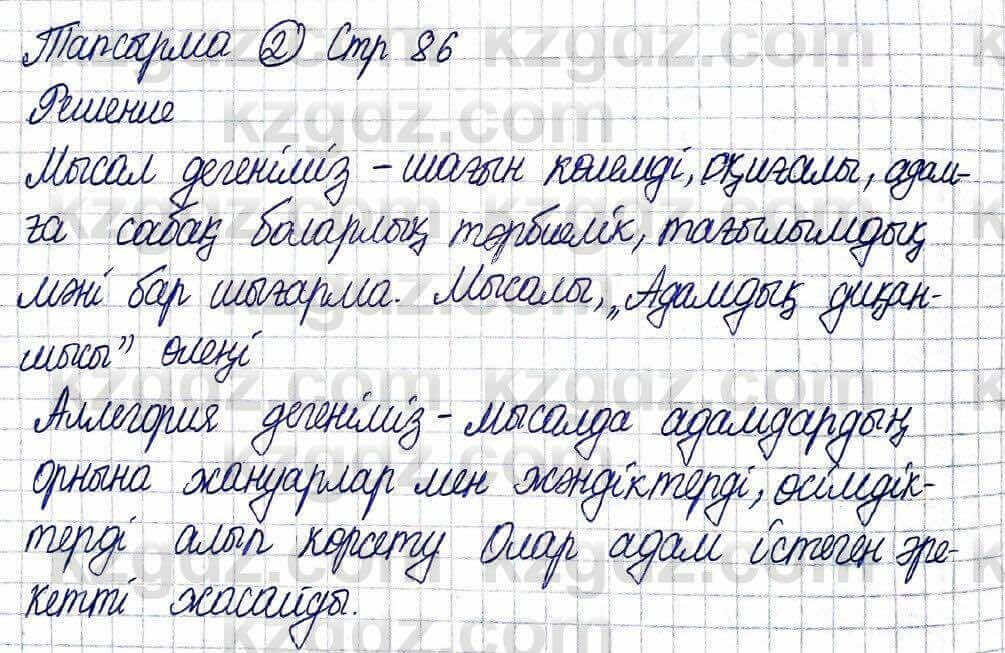 Тапсырма ② Стр 86
Решение
Мысал дегеніміз - шағын көлемді, оқиғалы, адам-
ға сабақ боларлық тәрбиелік, тағылымдық
мәні бар шығарма. Мысалы, „Адамдық диқан-
шысы" өлеңі
Аллегория дегеніміз - мысалда адамдардың
орнына жануарлар мен жәндіктерді, өсімдік-
терді алып көрсету Олар адам істеген әре-
кетті жасайды.